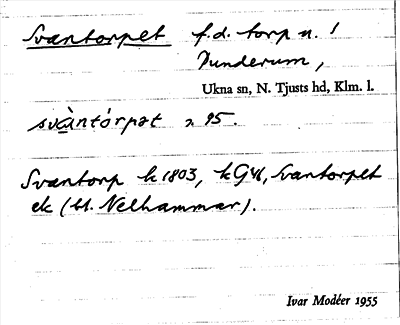 Svantorpet f.d. torp u. !
Dunderum,
Ukna sn, N. Tjusts hd, Klm. l.
svàntórpət n 95.
Svantorp k 1803, k G46, Svantorpet
ek (bl. Nelhammar).
Ivar Modéer 1955